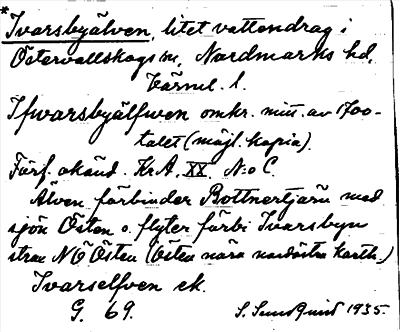 * Ivarsbyälven, litet vattendrag i
Östervallskogs sn, Nordmarks hd,
Värml. l.
Ifwarsbyälfwen omkr. mitt. av 1700-
talet (möjl. kopia).
Förf. okänd. KrA. XX. N:o C.
Älven förbinder Bottnertjärn med
sjön Östen o. flyter förbi Ivarsbyn
strax NÖ Östen (Östen nära nordöstra kartk.)
Ivarselfven ek.
G. 69. S. Sundquist 1935.